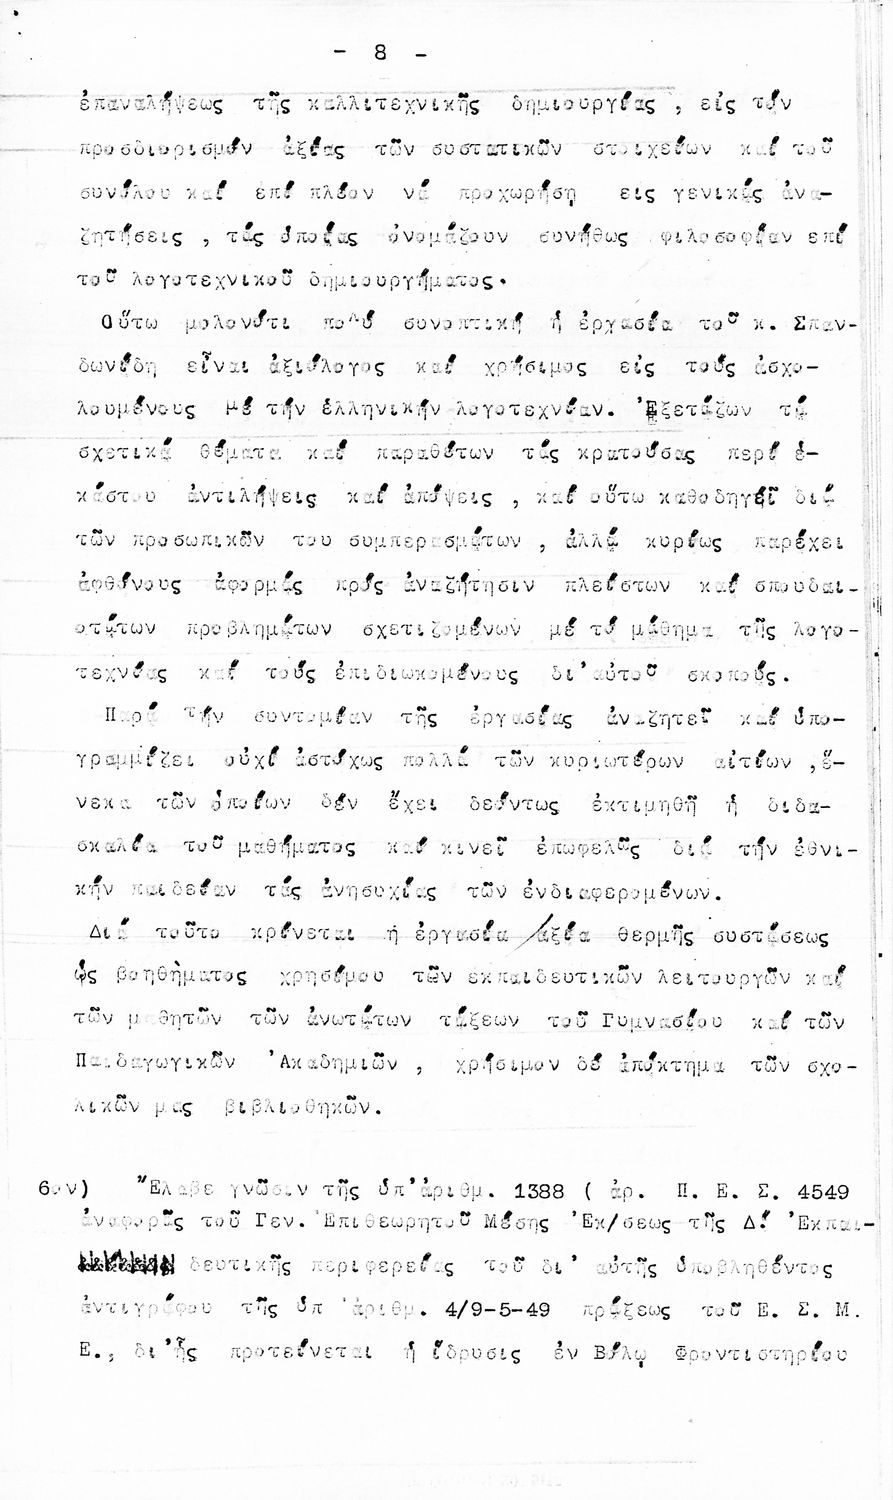 - 8 -
ἐπαναλήψεως τῆς καλλιτεχνικῆς δημιουργίας , εἰς τόν
προσδιορισμόν ἀξίας τῶν συστατικῶν στοιχείων καί τοῦ
συνόλου καί ἐπί πλέον νά προχωρήσῃ εις γενικάς ἀνα-
ζητήσεις , τάς ὁποίας ὀνομάζουν συνήθως φιλοσοφίαν επί
τοῦ λογοτεχνικοῦ δημιουργήματος.
Οὕτω μολονότι πολύ συνοπτική ἡ ἐργασία τοῦ κ. Σπαν-
δωνίδη εἶναι ἀξιόλογος καί χρήσιμος εἰς τούς ἀσχο-
λουμένους μέ τήν ἑλληνικήν λογοτεχνίαν. Ἐξετάζων τά
σχετικά θέματα καί παραθέτων τάς κρατούσας περί ἑ-
κάστου ἀντιλήψεις καί ἀπόψεις , καί οὕτω καθοδηγεῖ διά
τῶν προσωπικῶν του συμπερασμάτων , ἀλλά κυρίως παρέχει
ἀφθόνους ἀφορμάς πρός ἀναζήτησιν πλείστων καί σπουδαι-
οτάτων προβλημάτων σχετιζομένων μέ τό μάθημα τῆς λογο-
τεχνίας καί τούς ἐπιδιωκομένους δι'αὐτοῦ σκοπούς.
Παρά τήν συντομίαν τῆς ἐργασίας ἀναζητεῖ καί ὑπο-
γραμμίζει οὐχί ἀστόχως πολλά τῶν κυριωτέρων αἰτίων ,ἕ-
νεκα τῶν ὁποίων δέν ἔχει δεόντως ἐκτιμηθῆ ἡ διδα-
σκαλία τοῦ μαθήματος καί κινεῖ ἐπωφελῶς διά τήν ἐθνι-
κήν παιδείαν τάς ἀνησυχίας τῶν ἐνδιαφερομένων.
Διά τοῦτο κρίνεται ἡ ἐργασία ἀξία θερμῆς συστάσεως
ὡς βοηθὴματος χρησίμου τῶν εκπαιδευτικῶν λειτουργῶν καί
τῶν μαθητῶν τῶν ἀνωτάτων τάξεων τοῦ Γυμνασίου καί τῶν
Παιδαγωγικῶν Ἀκαδημιῶν , χρήσιμον δέ ἀπόκτημα τῶν σχο-
λικῶν μας βιβλιοθηκῶν.
6ον) Ἔλαβε γνῶσιν τῆς ὑπ'ἀριθμ. 1388 ( ἀρ. Π. Ε. Σ. 4549
ἀναφορᾶς τοῦ Γεν. Ἐπιθεωρητοῦ Μέσης Ἐκ/σεως τῆς Δ! Ἐκπαι-
δευτικῆς περιφερείας τοῦ δι' αὐτῆς ὑποβληθέντος
ἀντιγράφου τῆς ὑπ ἀριθμ. 4/9-5-49 πράξεως τοῦ Ε. Σ. Μ.
Ε., δι'ἧς προτείνεται ἡ ἵδρυσις ἐν Βόλῳ Φροντιστηρίου